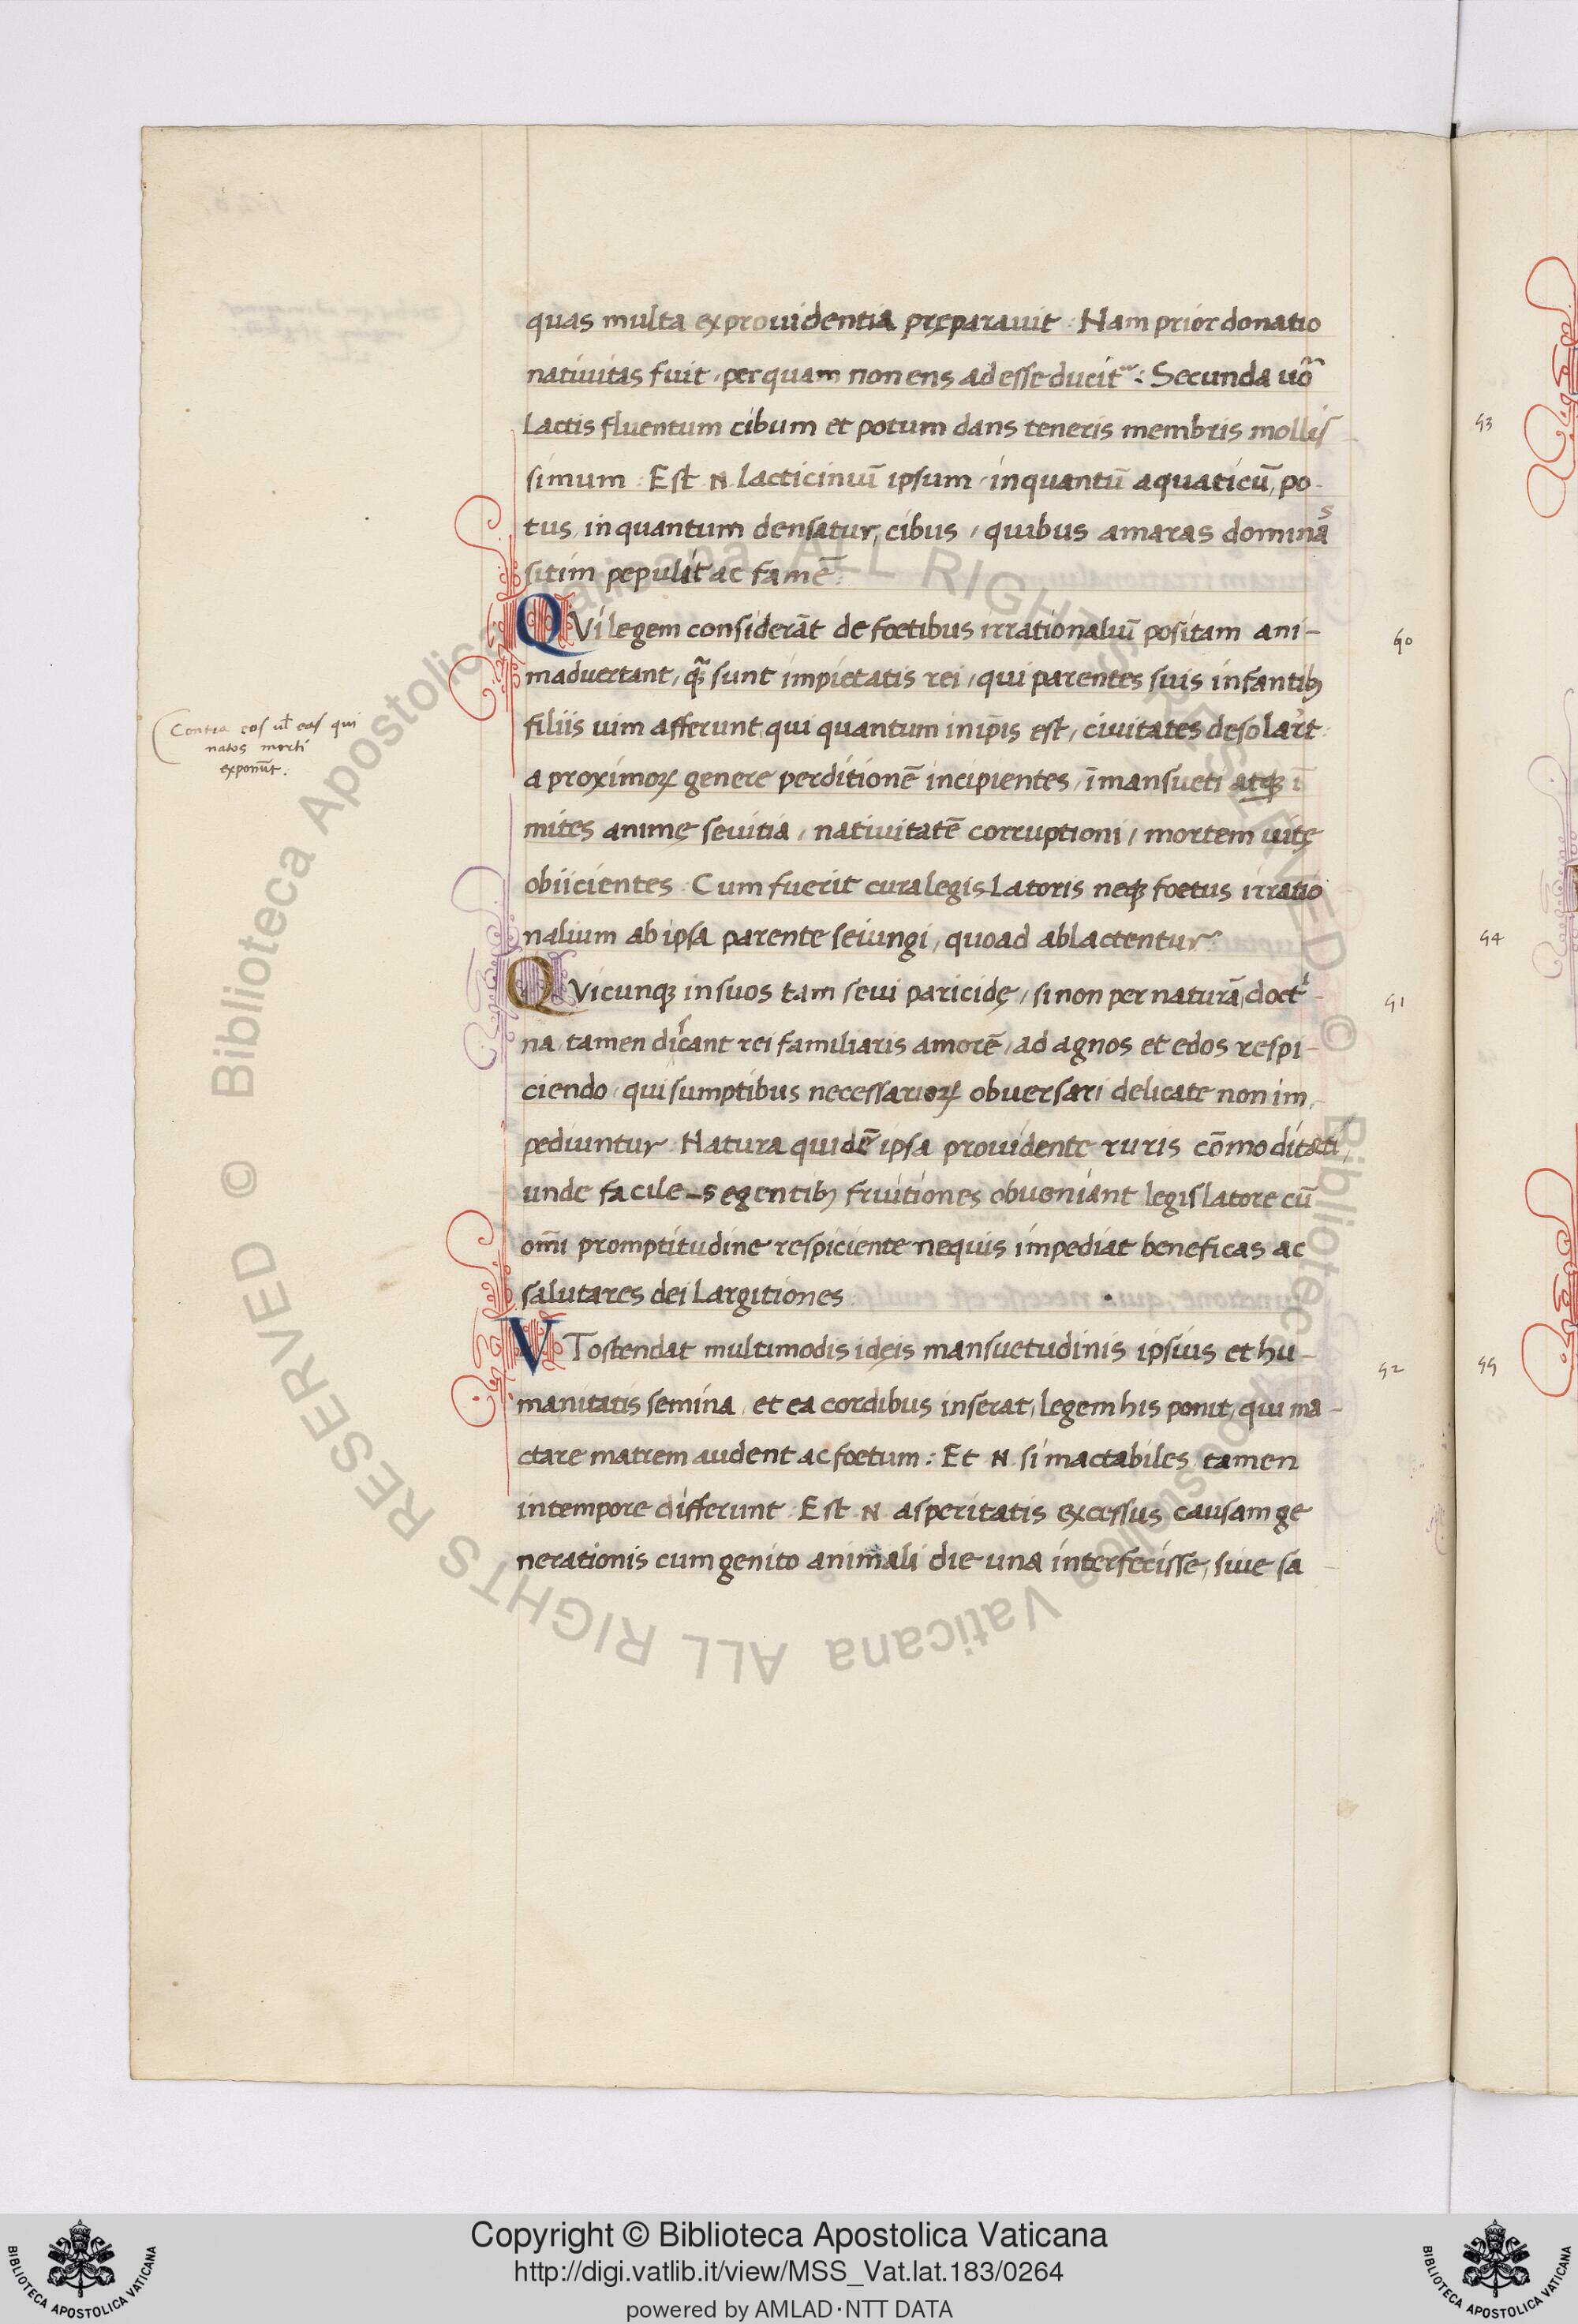 quas multa ex prouidentia pręparauit : Nam prior donatio
natiuitas fuit, per quam non ens ad esse ducit᷑ : Secunda uo᷑
Lactis fluentum cibum et potum dans teneris membris mollis
simum : Est .N. lacticiniū ipsum inquantū aquaticū, po-
tus, inquantum densatur, cibus, quibus amaras dominas
sitim pepulit ac famē :
QVi legem considerāt de foetibus irrationaliū positam ani-
maduertant, sunt impietatis rei, qui parentes suis infantibꝫ
filiis uim afferunt, qui quantum in ip̄is est, ciuitates desolāt :
a proximoꝝ genere perditionē incipientes, īmansueti atqꝫ ī
mites animę seuitia, natiuitatē corruptioni, mortem uitę
obiicientes : Cum fuerit cura legis Latoris neqꝫ foetus irratio
nalium ab ipsa parente seiungi, quoad ablactentur :
QVicunqꝫ in suos tam seui paricidę, si non per naturā, doct^i-
na tamen discant rei familiaris amorē, ad agnos et edos respi-
ciendo, qui sumptibus necessarioꝝ obuersari delicate non im-
pediuntur : Natura quidē ipsa prouidente ruris cōmoditati,
unde facile egentibꝫ fruitiones obueniant legislatore cū
om̄i promptitudine respiciente nequis impediat beneficas ac
salutares dei Largitiones :
VT ostendat multimodis idęis mansuetudinis ipsius et hu-
manitatis semina, et ea cordibus inserat, legem his ponit, qui ma-
ctare matrem audent ac foetum : Et .N. si mactabiles tamen
in tempore differunt : Est .N. asperitatis excessus causam ge
nerationis cum genito animali die una interfecisse, siue sa
Contra eos ul̄ eas qui
natos morti
exponūt :
90
91
92
93
94
95
Copyright © Biblioteca Apostolica Vaticana
http://digi.vatlib.it/view/MSS_Vat.lat.183/0264
powered by AMLAD·NTT DATA
BIBLIOTECA APOSTOLICA VATICANA
BIBLIOTECA APOSTOLICA VATICANA
© Biblioteca Apostolica Vaticana ALL RIGHTS RESERVED © Biblioteca Apostolica Vaticana ALL RIGHTS RESERVED